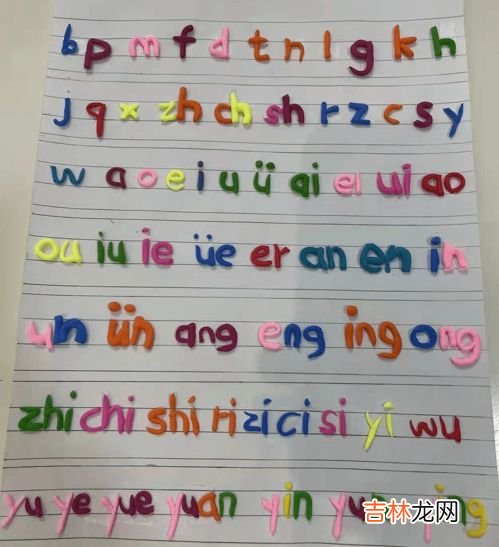 b p m f d t n l g k h
j q x zh ch sh r z c s y
w a o e i u ü ai ei ui ao
ou iu ie üe er an en in
un ün ang eng ing ong
zhi chi shi ri zi ci si yi wu
yu ye yue yuan yin yun ying
吉林龙网